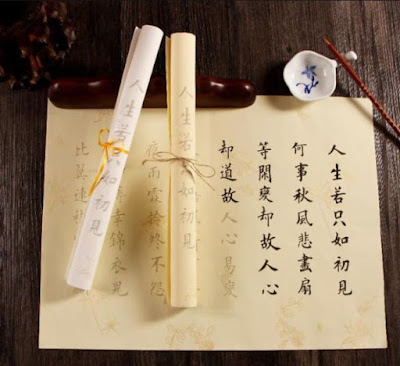 人生若只如初見
何事秋風悲畫扇
等閑變却故人心
却道故人心易變
夜雨霖鈴終不怨
幸錦衣兒
比翼連
人生若只如初見
人生若只如初見